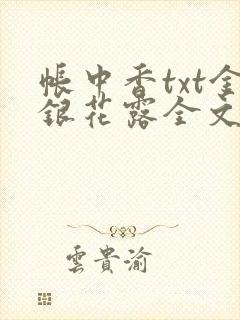 帳中香txt金
銀花露全文
雲貴渝